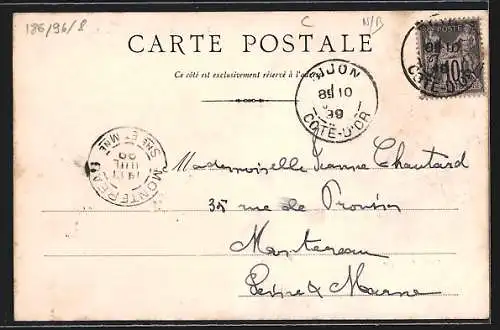 186/96/8
C
N/B
CARTE POSTALE
Ce côté est exclusivement réservé à l'adresse
DIJON
COTE-D'OR
POSTE
10
MONTEREAU
SNE ET MNE
Mademoiselle Jeanne Chautard
35 rue de Provins
Montereau
Seine & Marne